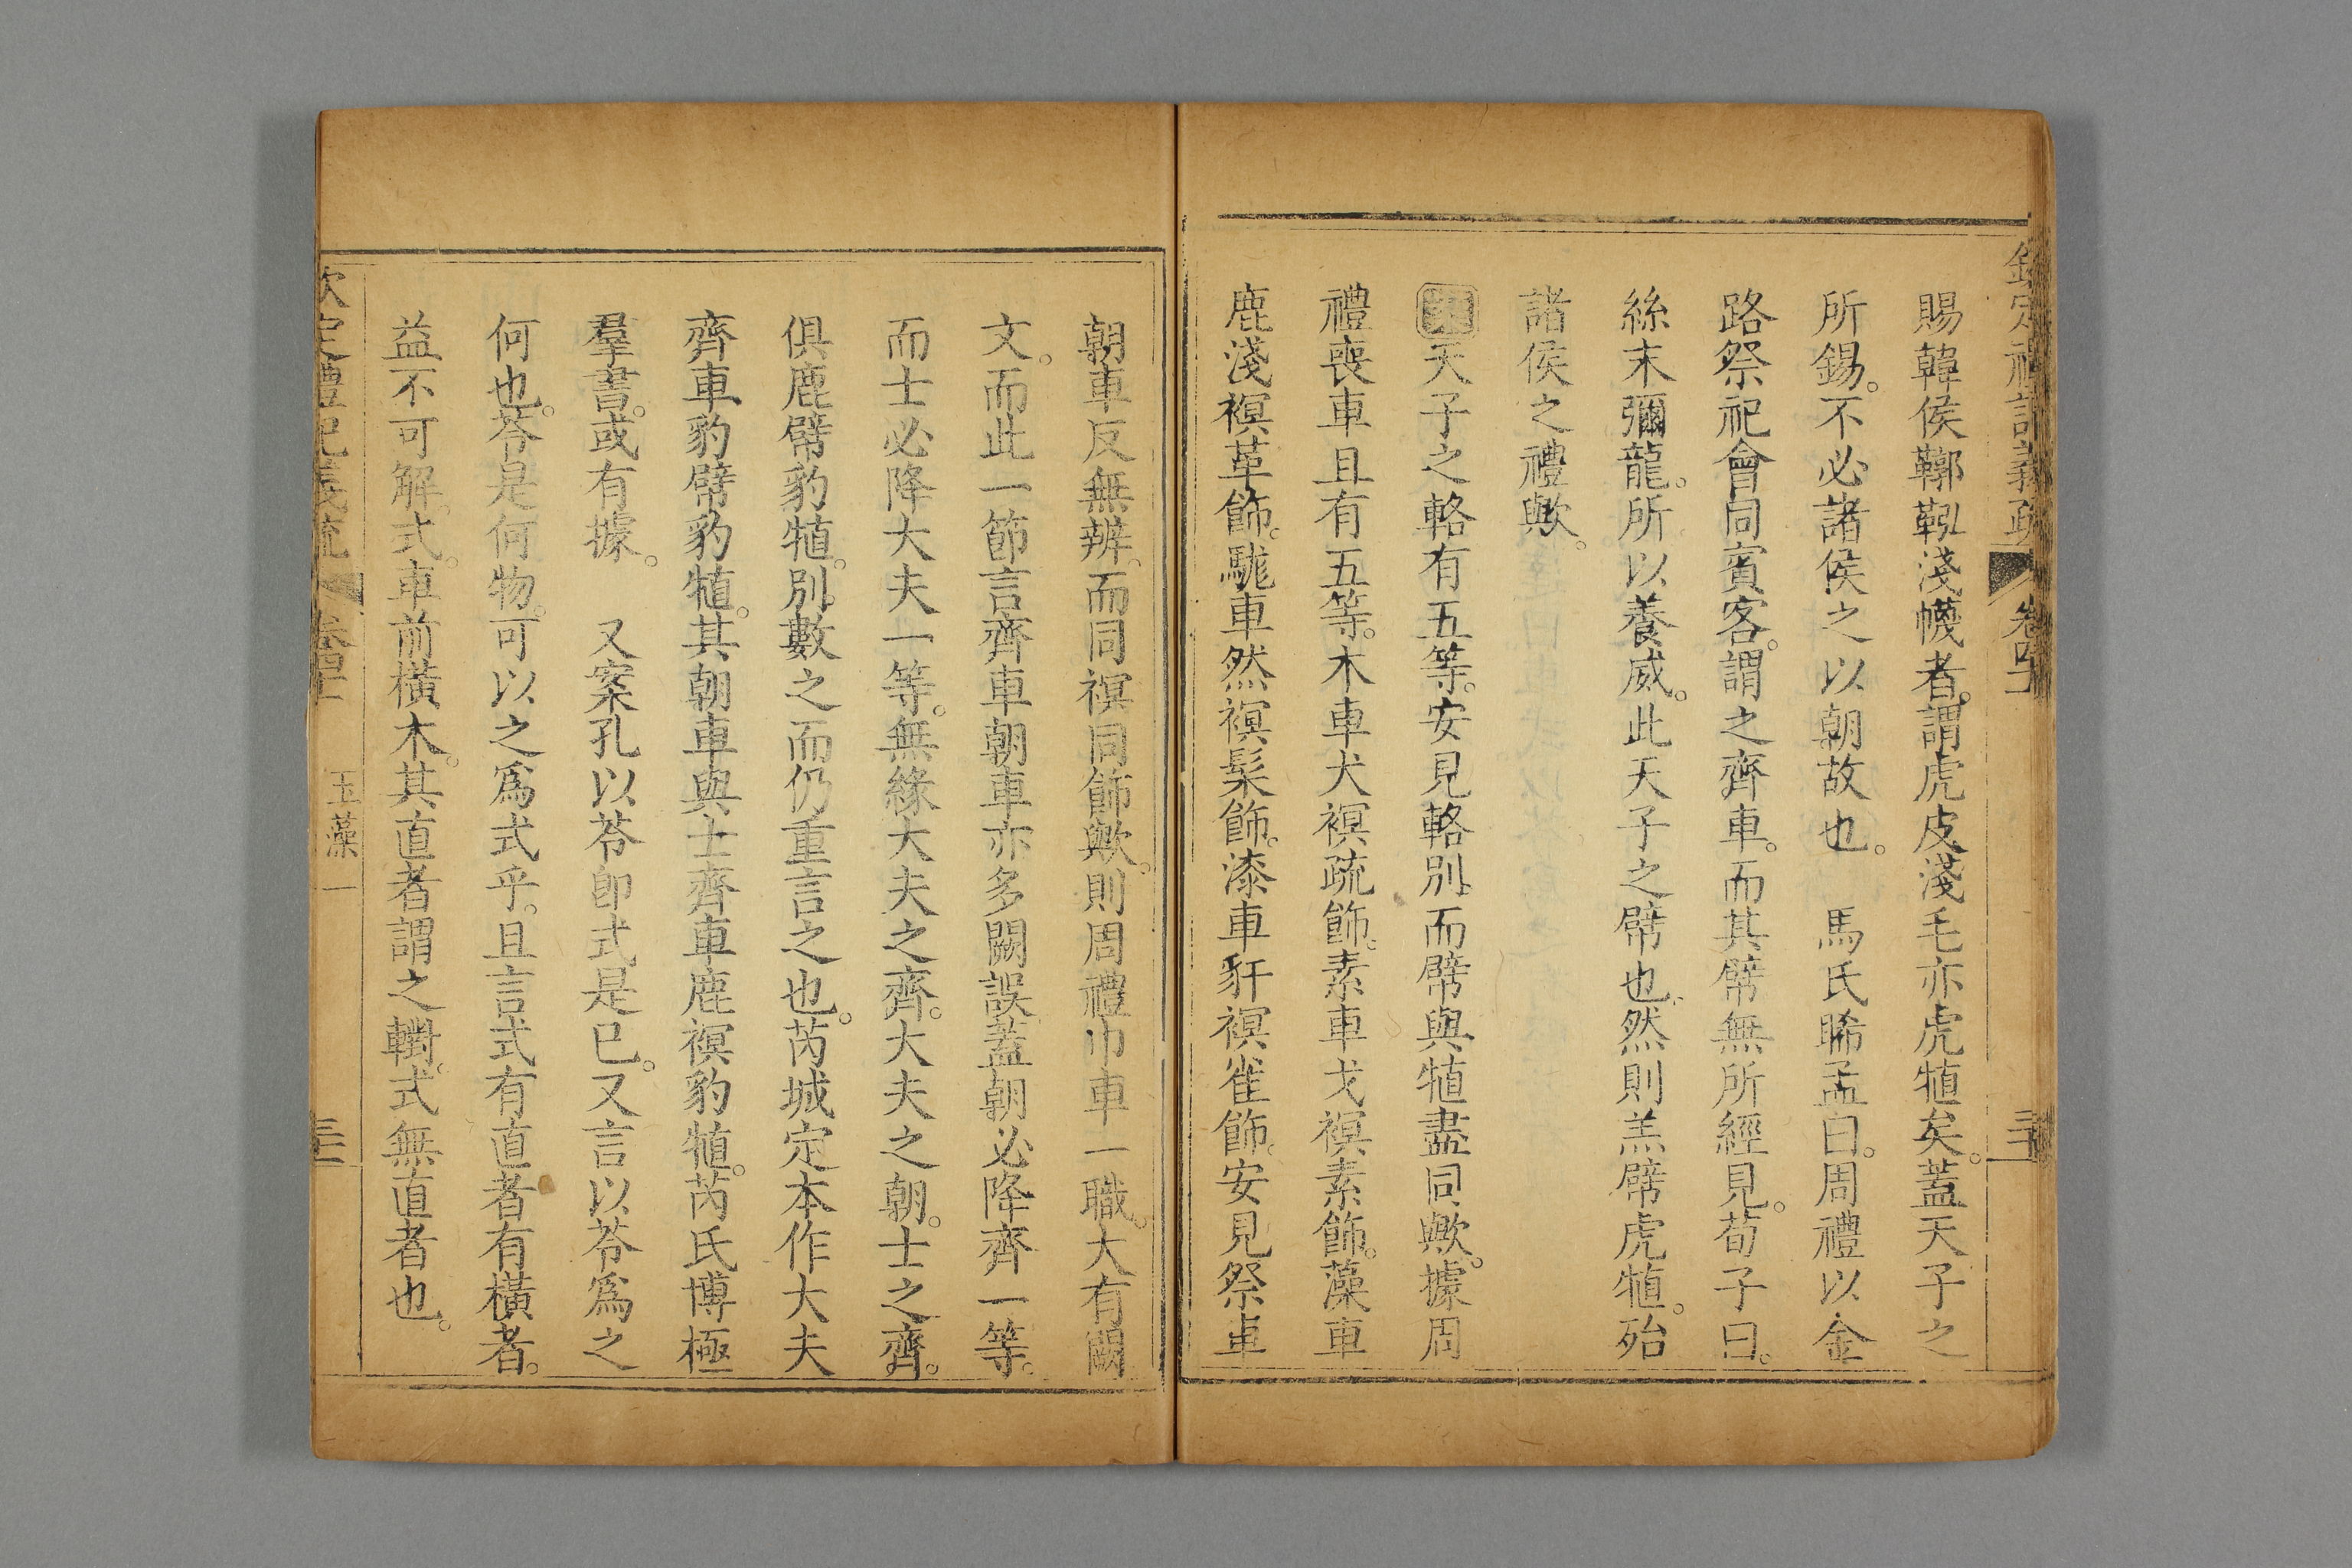 欽定禮記義疏 卷四十一
賜韓侯鞹鞃淺幭者。謂虎皮淺毛亦虎犆矣。蓋天子之
所錫。不必諸侯之以朝故也。 馬氏睎孟曰。周禮以金
路祭祀會同賓客。謂之齊車。而其幦無所經見。荀子曰。
絲末彌龍。所以養威。此天子之幦也。然則羔幦虎犆。殆
諸侯之禮歟。
案天子之輅有五等。安見輅別。而幦與犆盡同歟。據周
禮喪車且有五等。木車犬𧜀疏飾。素車戈𧜀素飾。藻車
鹿淺𧜀革飾。駹車然𧜀髹飾。漆車豻𧜀雀飾。安見祭車
朝車反無辨。而同𧜀同飾歟。則周禮巾車一職。大有闕
文。而此一節言齊車朝車亦多闕誤蓋朝必降齊一等。
而士必降大夫一等。無緣大夫之齊。大夫之朝。士之齊。
俱鹿幦豹犆。別數之而仍重言之也。芮城定本作大夫
齊車豹幦豹犆。其朝車與士齊車鹿𧜀豹犆。芮氏博極
羣書。或有據。 又案孔以苓卽式是已。又言以苓爲之
何也。苓是何物。可以之爲式乎。且言式有直者有橫者。
益不可解。式。車前橫木。其直者謂之轛。式無直者也。
欽定禮記義疏 卷四十一 玉藻一